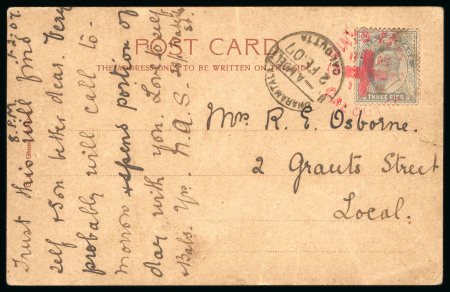 POST CARD
THE ADDRESS ONLY TO BE WRITTEN ON THIS SIDE
DHARAMTALA
CALCUTTA
2 FE 07
THREE PIES
Mrs. R. E. Osborne.
2 Grants Street
Local.
8 P.M. 1-2-07
Trust this will find
self & son better dear. Very
probably will call to-
morrow & spend portion of
day with you. Love self
& Babs. Yrs. N.A.S.